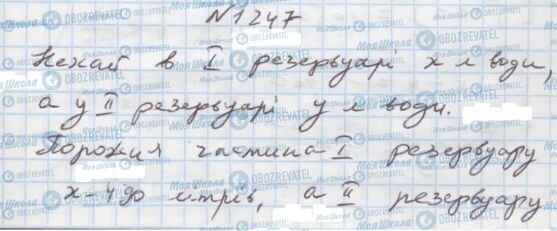 №1247
Нехай в I резервуарі х л води,
а у II резервуарі у л води.
Порожня частина I резервуару
х-490 літрів, а II резервуару